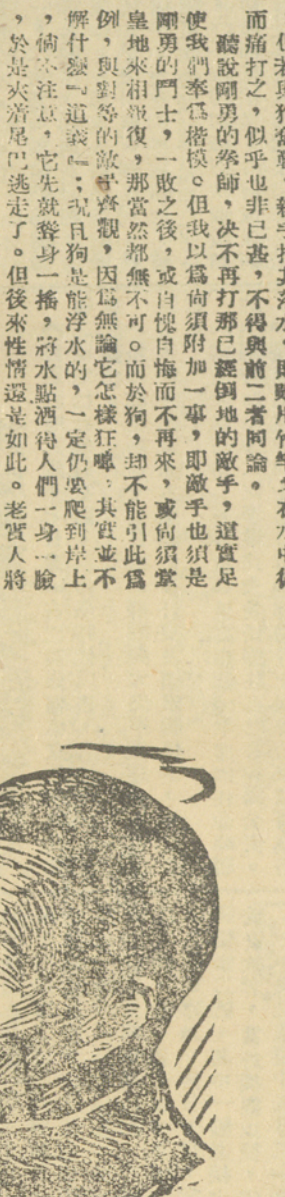 而痛打之，似乎也非已甚，不得與前二者同論。
聽說剛勇的拳師，决不再打那已經倒地的敵手，這實足
使我們奉爲楷模。但我以爲尙須附加一事，即敵手也須是
剛勇的鬥士，一敗之後，或自愧自悔而不再來，或尙須堂
皇地來相報復，那當然都無不可。而於狗，却不能引此爲
例，與對等的敵手齊觀，因爲無論它怎樣狂嘷，其實並不
解什麼『道義』；况且狗是能浮水的，一定仍要爬到岸上
，倘不注意，它先就聳身一搖，將水點洒得人們一身一臉
，於是夾着尾巴逃走了。但後來性情還是如此。老實人將